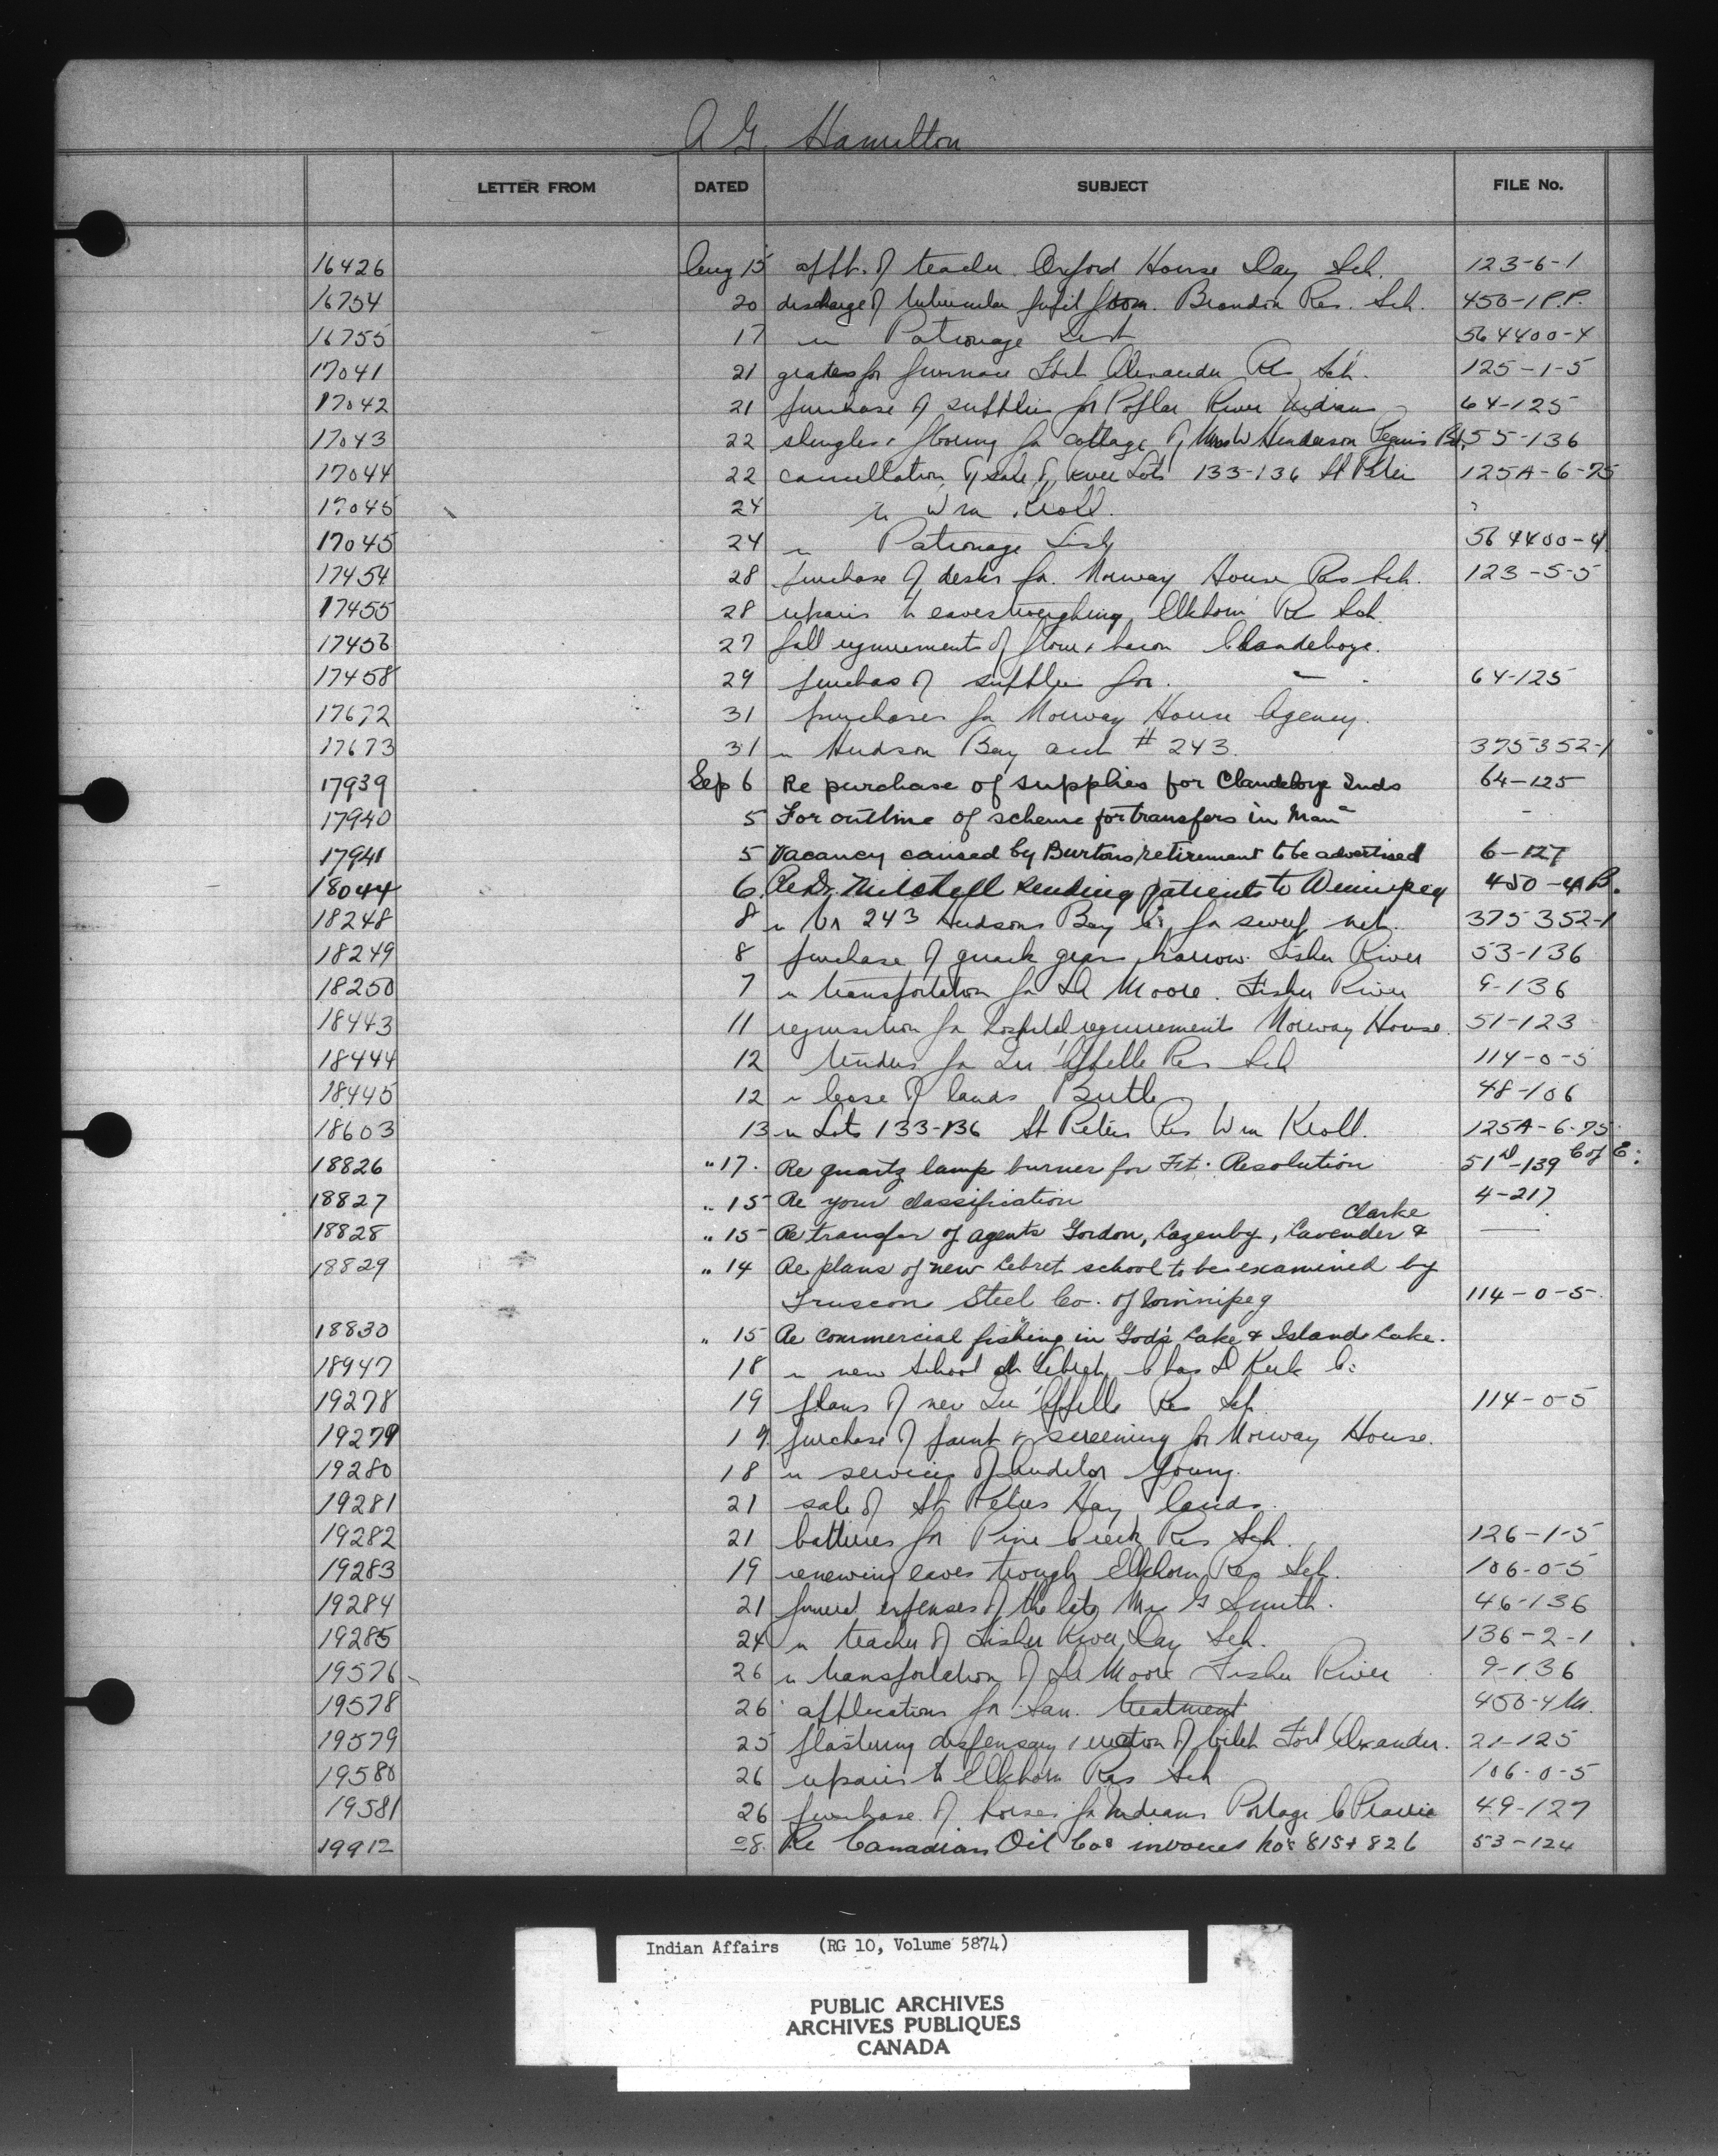 A G. Hamilton
LETTER FROM DATED SUBJECT FILE No.
16426 Aug 15 appt. of teacher Oxford House Day Sch. 123-6-1
16754 20 discharge of tubercular pupil from Brandon Res. Sch. 450-1P.P.
16755 17 re Patronage List 564400-4
17041 21 grates for furnace Fort Alexander Res Sch. 125-1-5
17042 21 purchase of supplies for Poplar River Indians 64-125
17043 22 shingles & flooring for cottage of Mrs W Henderson Peguis Bd. 55-136
17044 22 cancellation of sale of River Lots 133-136 St Peter 125A-6-75
17045 24 re Wm Kroll.
17045 24 re Patronage List 564400-4
17454 28 purchase of desks for Norway House Res Sch. 123-5-5
17455 28 repairs to eavestroughing Elkhorn Re Sch.
17456 27 fall requirements of flour & bacon Clandeboye.
17458 29 purchas of supplies for " 64-125
17672 31 purchases for Norway House Agency.
17673 31 re Hudson Bay acct # 243. 375352-1
17939 Sep 6 Re purchase of supplies for Clandeboye Inds 64-125
17940 5 For outline of scheme for transfers in Man - -
17941 5 Vacancy caused by Burtons retirement to be advertised 6-127
18044 6. Re Dr. Mitchell sending patients to Winnipeg 450-4B.
18248 8 re Vr 243 Hudsons Bay Co for sweep net. 375352-1
18249 8 purchase of quack grass harrow Fisher River 53-136
18250 7 re transportation for Dr Moore. Fisher River 9-136
18443 11 requisition for hospital requirements Norway House. 51-123
18444 12 tenders for Qu'Appelle Res Sch 114-0-5
18445 12 re lease of lands Birtle 48-106
18603 13 re Lots 133-136 St Peters Res Wm Kroll. 125A-6-75
18826 " 17. Re quartz lamp burner for Ft. Resolution 51-139 C of E.
18827 " 15 Re your classification 4-217
Clarke
18828 " 15 Re transfer of agents Gordon, Cazenby, Lavender & —
18829 " 14 Re plans of new Lebret school to be examined by
Truscon Steel Co. of Winnipeg 114-0-5.
18830 " 15 Re commercial fishing in God's Lake & Island Lake.
18947 18 re new School at Lebret Chas D Kirk Co
19278 19 plans of new Qu'Appelle Res Sch. 114-0-5
19279 19 purchase of paint & screening for Norway House.
19280 18 re services of Auditor Young.
19281 21 sale of St Peters Hay lands.
19282 21 batteries for Pine Creek Res Sch. 126-1-5
19283 19 renewing eaves trough Elkhorn Res Sch. 106-0-5
19284 21 funeral expenses of the late Mrs G Smith. 46-136
19285 24 re teacher of Fisher River Day Sch. 136-2-1
19576 26 re transportation of Dr Moore Fisher River 9-136
19578 26 applications for San. treatment 450-4M.
19579 25 plastering dispensary & erection of Fort Alexander. 21-125
19580 26 repairs to Elkhorn Res Sch 106-0-5
19581 26 purchase of horses for Indians Portage L Prairie 49-127
19912 28. Re Canadian Oil Cos invoices Nos 815 & 826 53-124
Indian Affairs (RG 10, Volume 5874)
PUBLIC ARCHIVES
ARCHIVES PUBLIQUES
CANADA